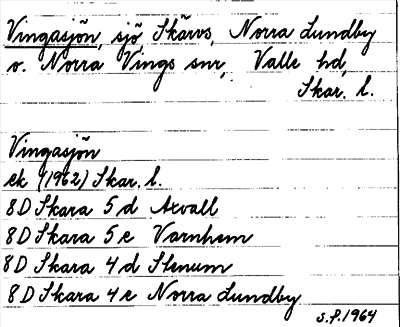 Vingasjön, sjö, Skärvs, Norra Lundby
o. Norra Vings snr, Valle hd,
Skar. l.
Vingasjön
ek (1962) Skar. l.
8D Skara 5d Axvall
8D Skara 5e Varnhem
8D Skara 4d Stenum
8D Skara 4e Norra Lundby
S.P. 1964